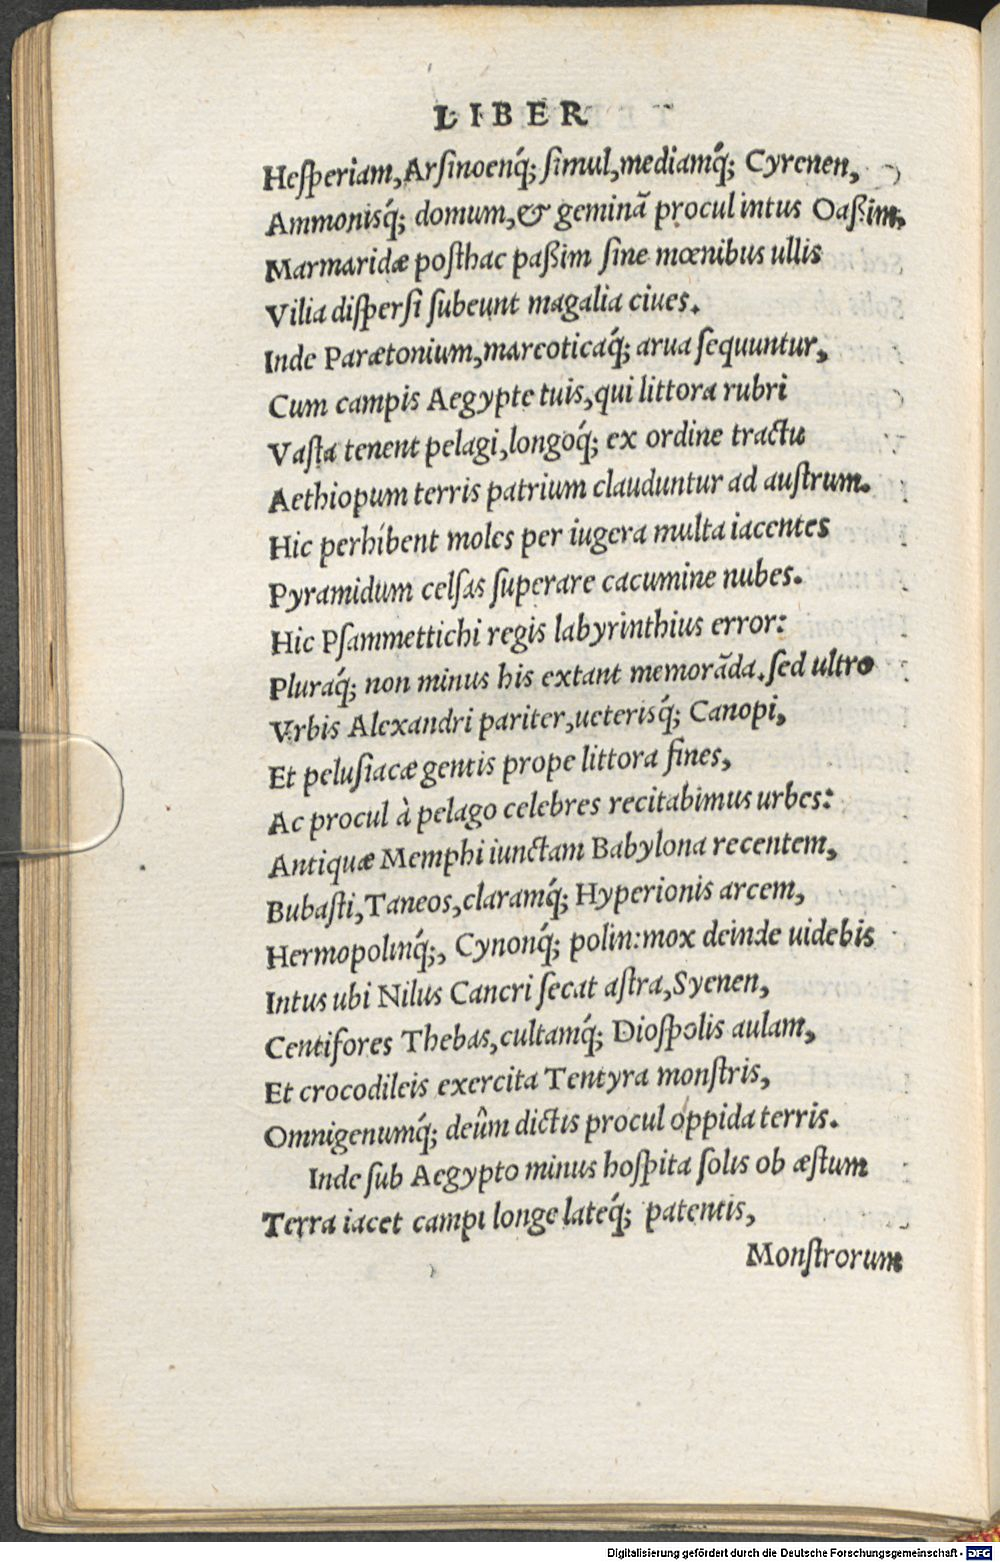 LIBER
Heſperiam, Arſinoenq́; ſimul, mediamq́; Cyrenen,
Ammonisq́; domum, & geminā procul intus Oaßim,
Marmaridæ poſthac paßim ſine mœnibus ullis
Vilia diſperſi ſubeunt magalia ciues.
Inde Parætonium, mareoticaq́; arua ſequuntur,
Cum campis Aegypte tuis, qui littora rubri
Vaſta tenent pelagi, longoq́; ex ordine tractu
Aethiopum terris patrium clauduntur ad auſtrum.
Hic perhibent moles per iugera multa iacentes
Pyramidum celſas ſuperare cacumine nubes.
Hic Pſammettichi regis labyrinthius error:
Pluraq́; non minus his extant memorāda. ſed ultro
Vrbis Alexandri pariter, ueterisq́; Canopi,
Et peluſiacæ gentis prope littora fines,
Ac procul à pelago celebres recitabimus urbes:
Antiquæ Memphi iunctam Babylona recentem,
Bubaſti, Taneos, claramq́; Hyperionis arcem,
Hermopolinq́;, Cynonq́; polin: mox deinde uidebis
Intus ubi Nilus Cancri ſecat aſtra, Syenen,
Centifores Thebas, cultamq́; Dioſpolis aulam,
Et crocodileis exercita Tentyra monſtris,
Omnigenumq́; deûm dictis procul oppida terris.
Inde ſub Aegypto minus hoſpita ſolis ob æſtum
Terra iacet campi longe lateq́; patentis,
Monſtrorum
Digitalisierung gefördert durch die Deutsche Forschungsgemeinschaft - DFG